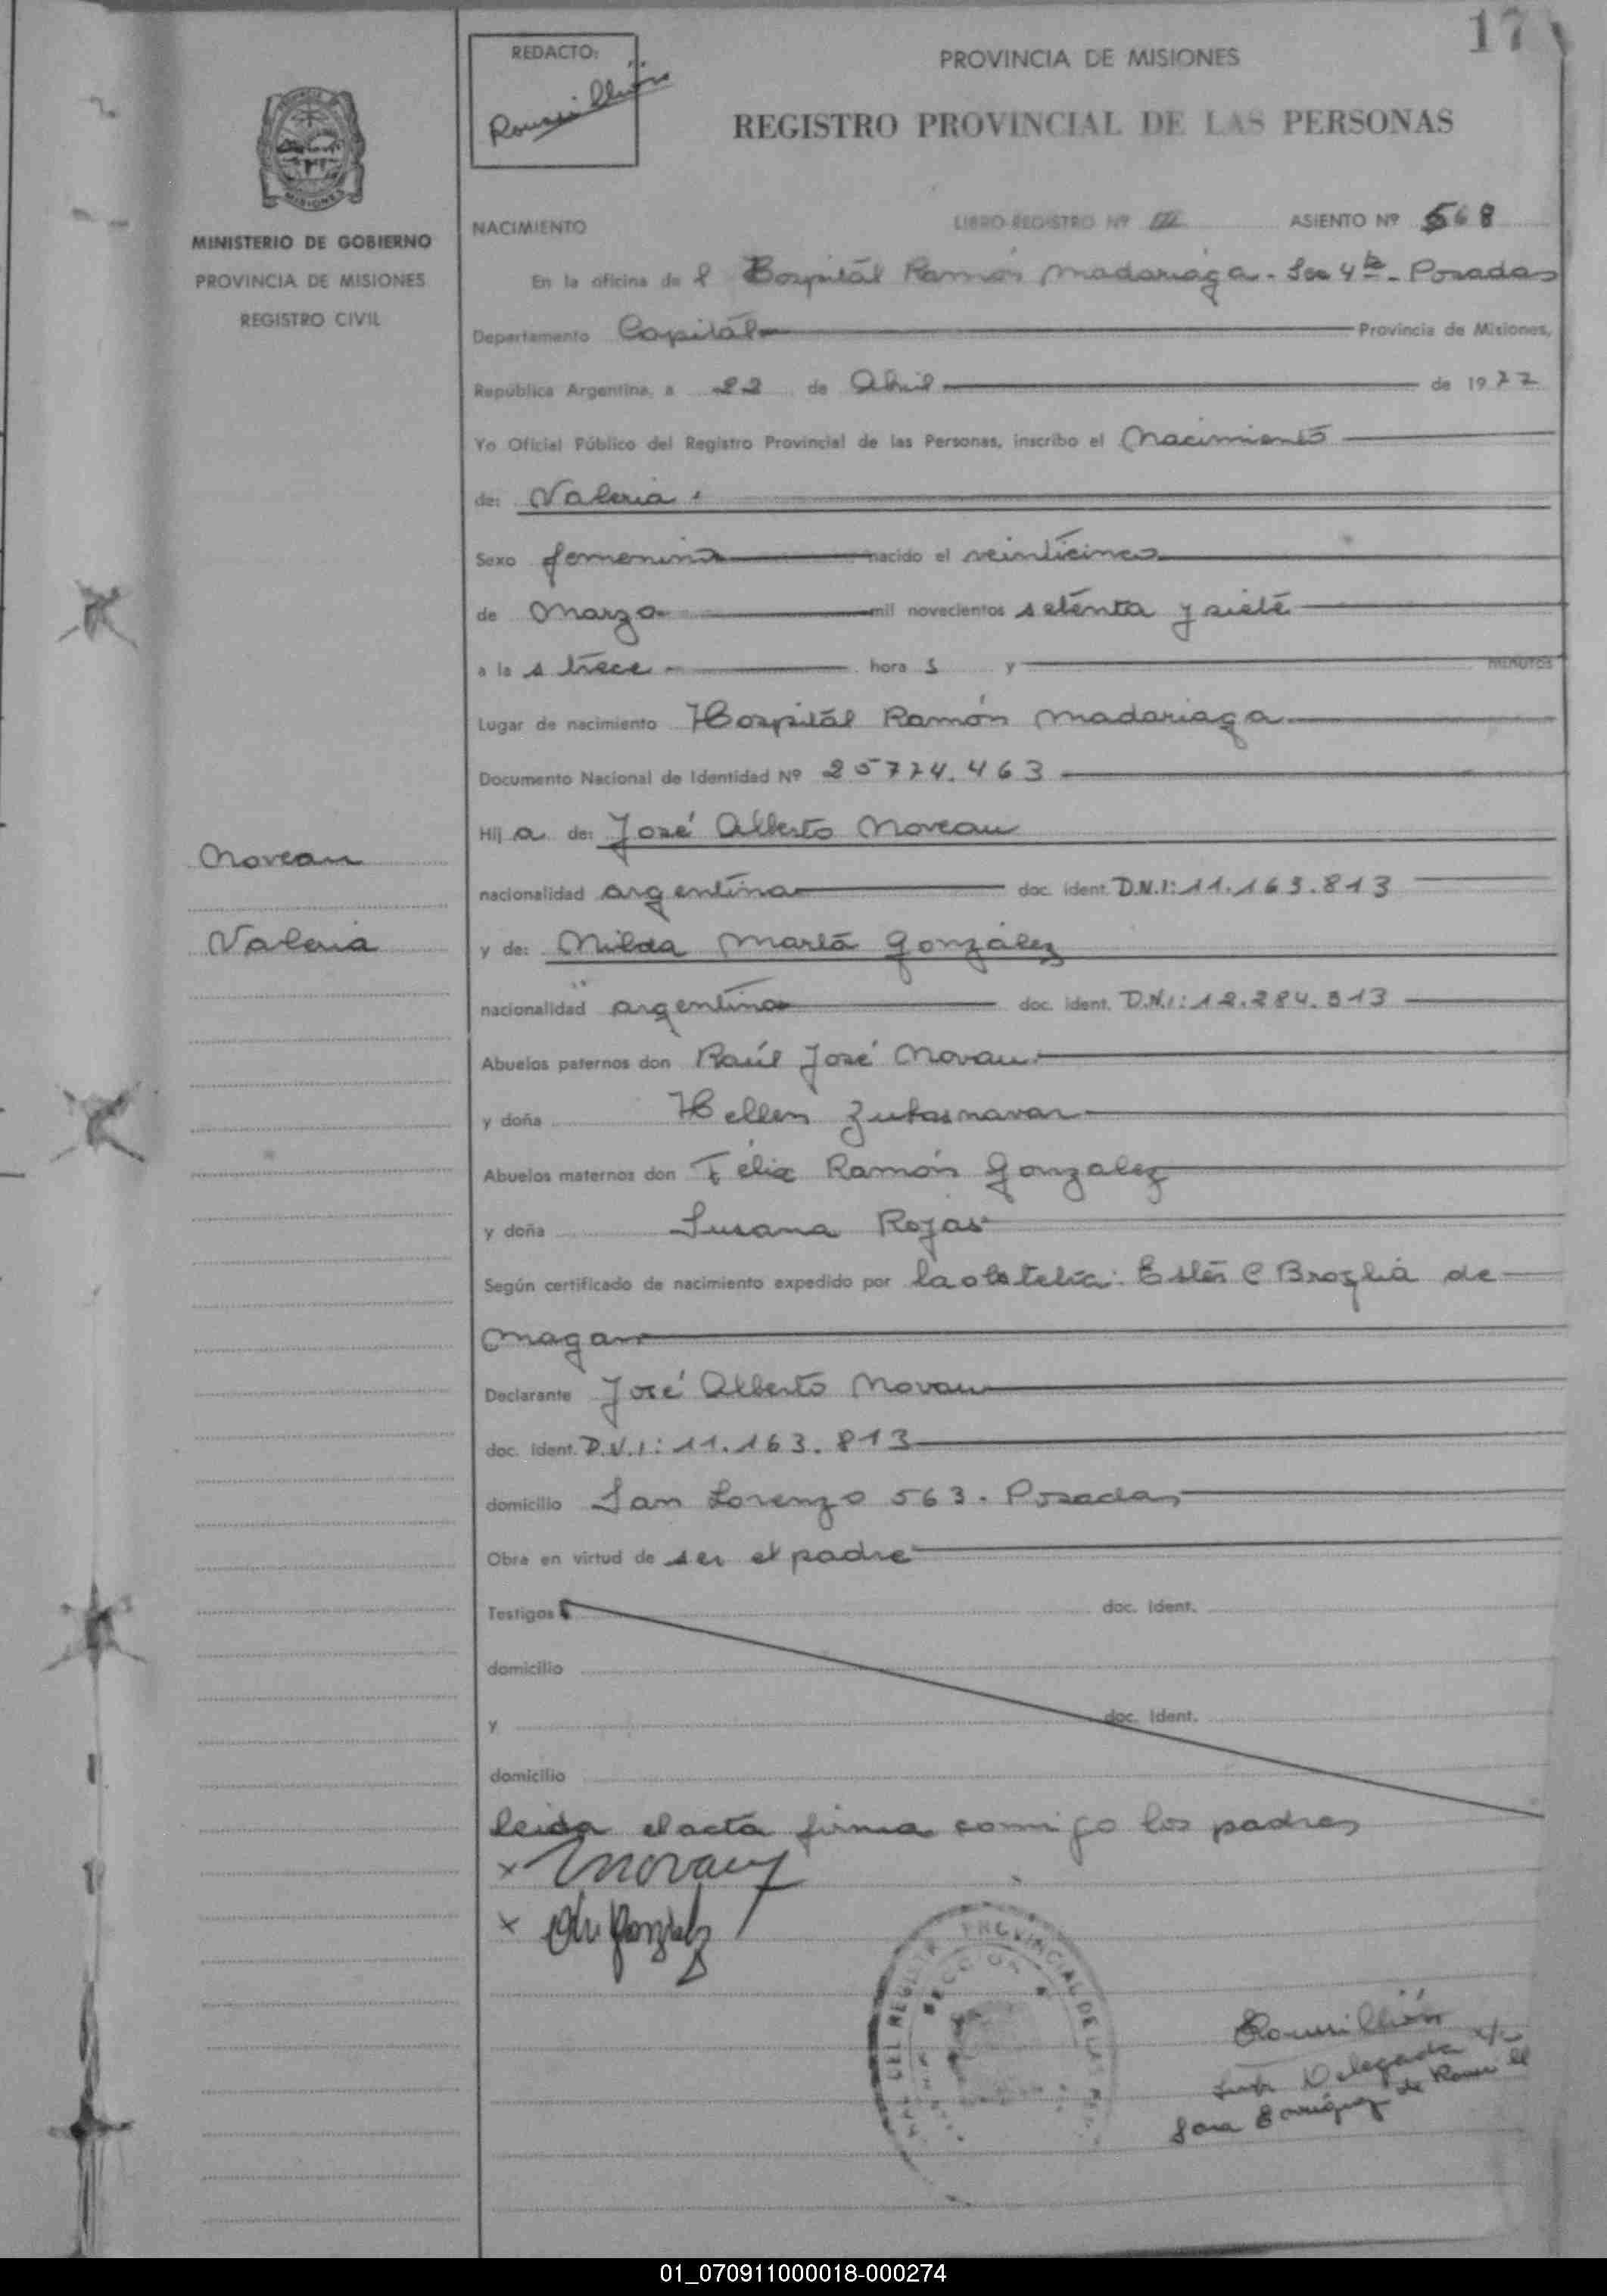 17
REDACTO:
PROVINCIA DE MISIONES
REGISTRO PROVINCIAL DE LAS PERSONAS
MISIONES
MINISTERIO DE GOBIERNO
PROVINCIA DE MISIONES
REGISTRO CIVIL
NACIMIENTO LIBRO REGISTRO Nº III ASIENTO Nº 568
En la oficina de l Hospital Ramón Madariaga - Sec 4ta - Posadas
Departamento Capital Provincia de Misiones,
República Argentina, a 22 de Abril de 1977
Yo Oficial Público del Registro Provincial de las Personas, inscribo el Nacimiento
de: Valeria
Sexo femenino nacido el veinticinco
de Marzo mil novecientos setenta y siete
a la s trece hora s y MINUTOS
Lugar de nacimiento Hospital Ramón Madariaga
Documento Nacional de Identidad Nº 25774.463
Hij a de: José Alberto Noveau
nacionalidad argentina doc. ident. D.N.I: 11.163.813
y de: Nilda Marta González
nacionalidad argentina doc. ident. D.N.I: 12.284.313
Abuelos paternos don Raúl José Novau
y doña Hellen
Abuelos maternos don Félix Ramón Gonzalez
y doña Susana Rojas
Según certificado de nacimiento expedido por la obstetra: Ester C Broglia de
Magan
Declarante José Alberto Novau
doc. Ident. D.N.I: 11.163.813
domicilio San Lorenzo 563. Posadas
Obra en virtud de ser el padre
Testigos doc. Ident.
domicilio
y doc. Ident.
domicilio
leida el acta firma comigo los padres
x Novau
x González
Noveau
Valeria
DEL REGISTRO PROVINCIAL DE LAS
SECCION
Delegada
Sara
01_070911000018-000274